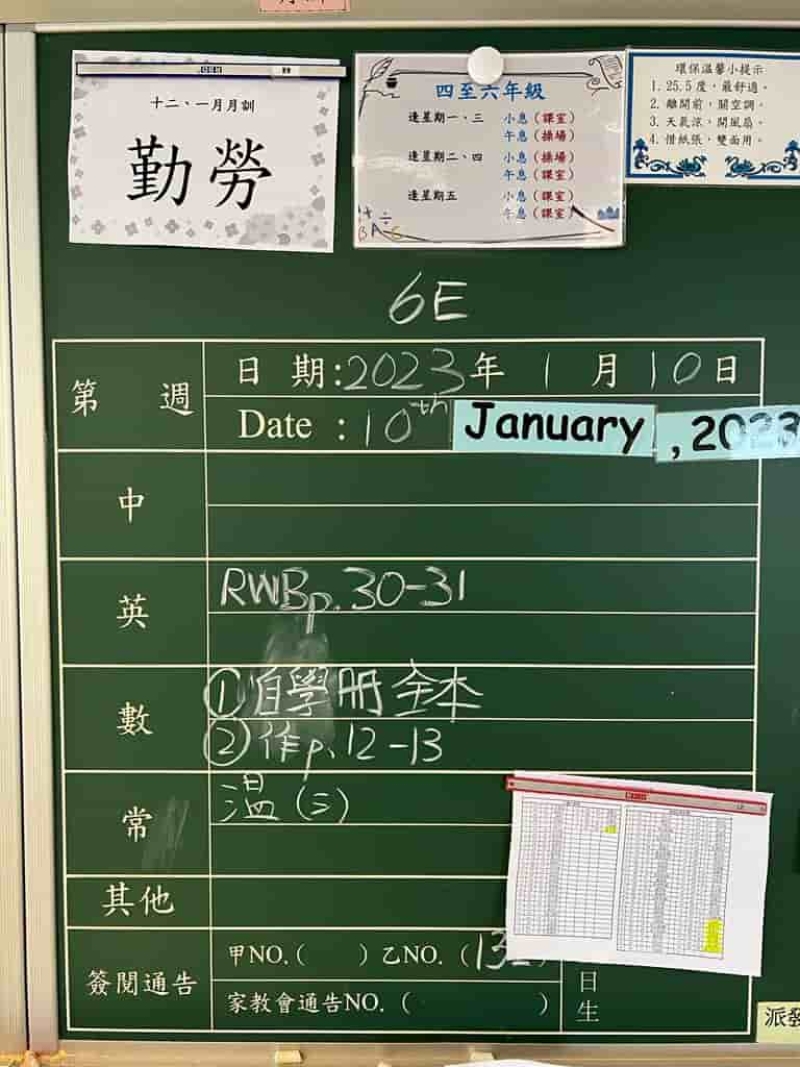 十二、一月月訓
勤勞
四至六年級
逢星期一、三 小息（課室）
午息（操場）
逢星期二、四 小息（操場）
午息（課室）
逢星期五 小息（課室）
午息（課室）
環保溫馨小提示
1. 25.5度，最舒適。
2. 離開前，關空調。
3. 天氣涼，開風扇。
4. 惜紙張，雙面用。
6E
第 週
日 期:2023年 1 月 10日
Date : 10th January, 2023
中
英
RWBp.30-31
數
①自學冊全本
②作p.12-13
常
溫(三)
其他
簽閱通告
甲NO.( ) 乙NO.(
家教會通告NO.( )
日
生
派發